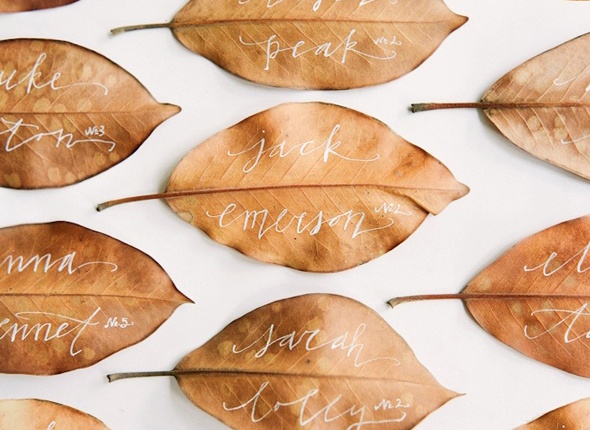 peak No.2
uke
ton No.3
jack
emerson No.2
nna
ennet No.5
el
ta
sarah
lolly No.2